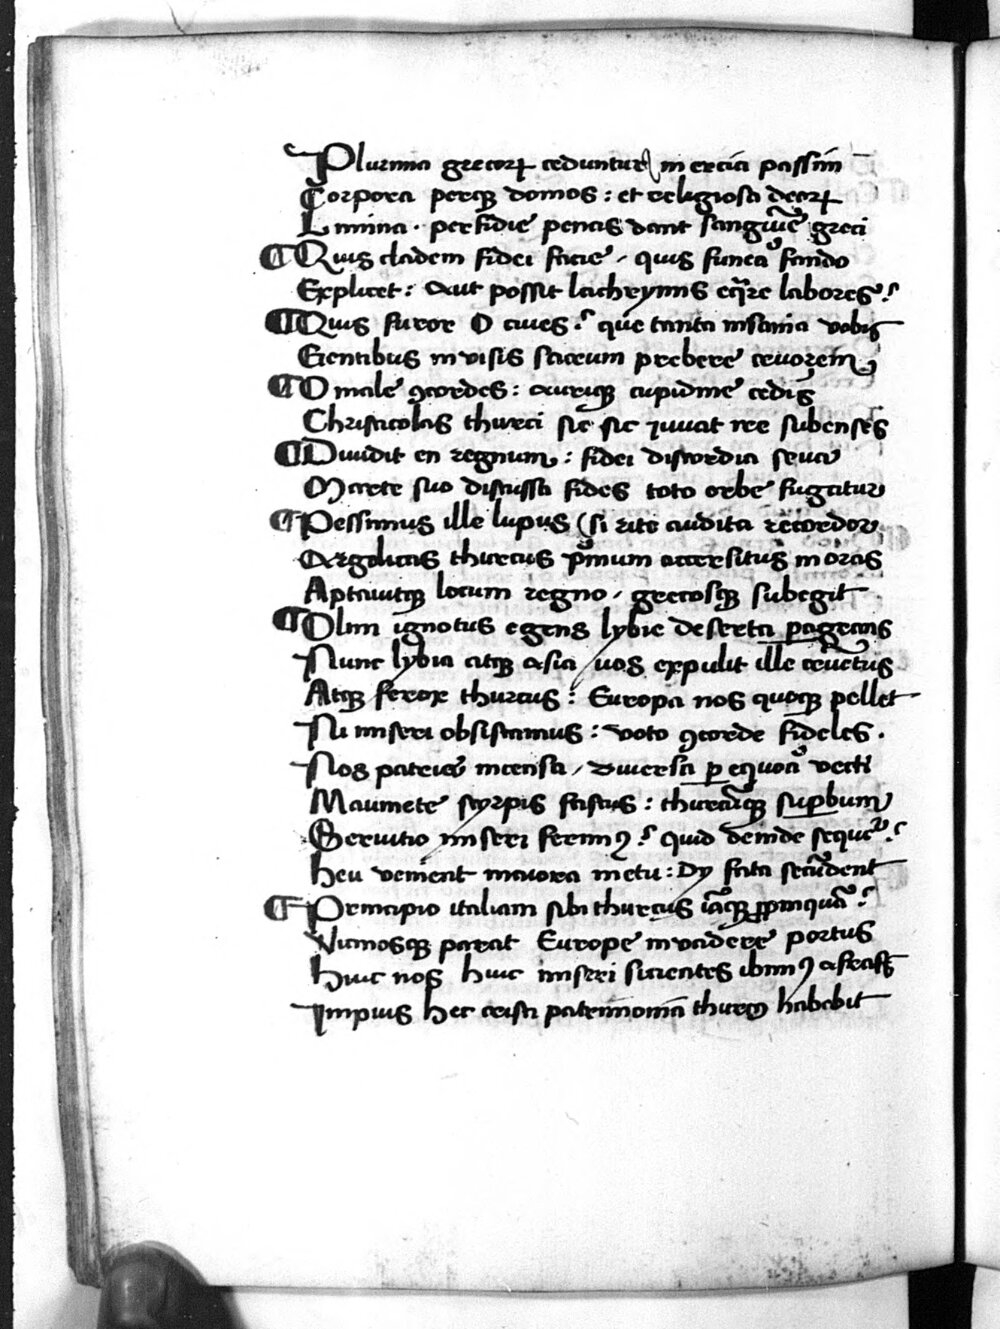 Plurima grecoꝝ ceduntur / in ercia passim
Corpora perqꝫ domos : et religiosa deoꝝ
Limina · perfidie penas dant sanguīe greci
¶ Quis cladem fidei facie / quis funera fando
Explicet : Aut possit lachrymis eq̄re labores ?
¶ Quis furor O ciues ? que tanta insania vobis
Gentibus inuisis staceum prebere cruorem
¶ O male ꝯcordes : aurieqꝫ cupidine cedis
Christicolas thurci sic sic iuuat ire sub enses
¶ Diuidit en regnum : fidei discordia seua
Marte suo discussa fides toto orbe fugatur
¶ Pessimus ille lupus (si rite audita recordor
Argolicas thurcus p̄mum accersitus in oras
Aptauitqꝫ locum regno / grecosqꝫ subegit
¶ Olim ignotus egens lybie deserta ꝑagrans
Nunc lybia atqꝫ asia nos expulit ille cruētus
Atqꝫ ferox thurcus : Europa nos quoqꝫ pellet
Ni miseri obsistamus : voto ꝯcorde fideles .
Nos patrie incensa / diuersa ꝑ equora vecti
Maumete scorpis fastus : thurcūqꝫ suꝑbum
Seruitio miseri ferimꝰ ? quid deinde sequet᷑ ?
Heu venient maiora metu : Dy fata secūdent
¶ Principio italiam sibi thurcus iāqꝫ ꝓpinquā ?
Vicinosqꝫ parat Europe inuadere portus
Huic nos huic miseri sicientes ibimꝰ afraſꝫ
Impius hec certa patrimonia thurcꝰ habebit